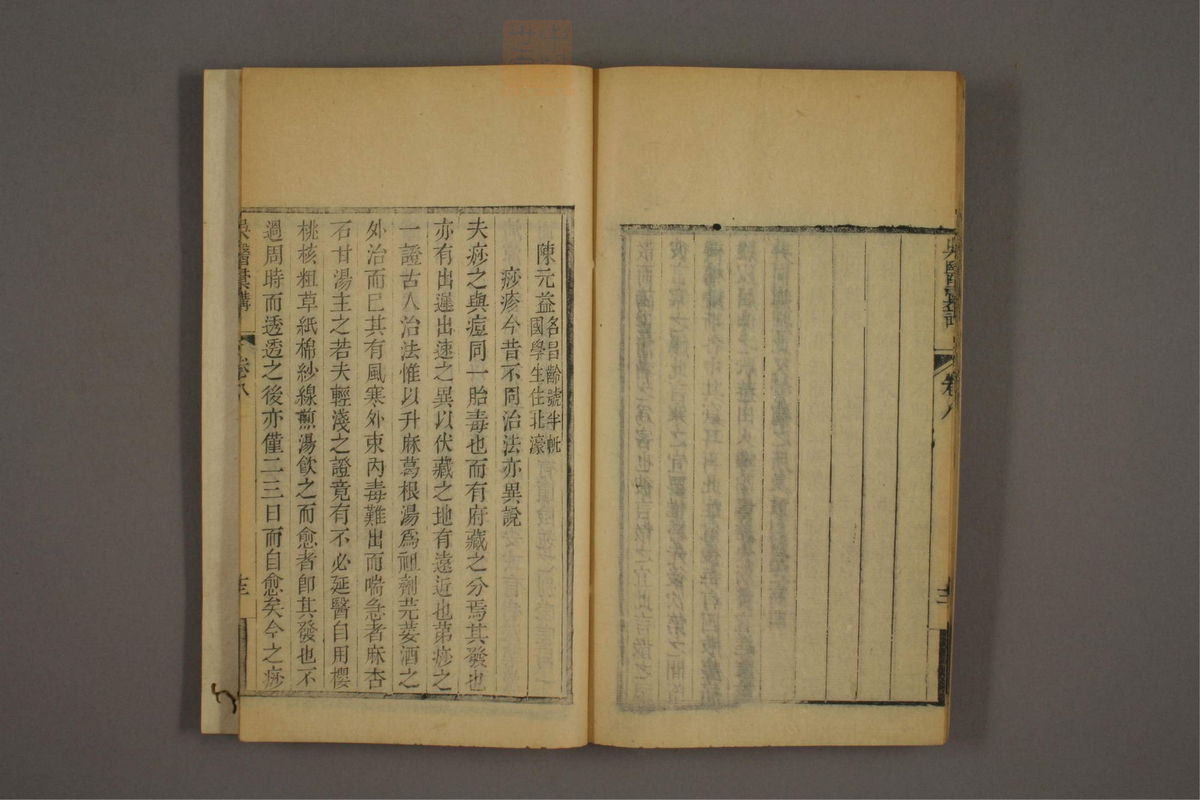 吳醫彙講
卷八
陳元益
名昌齡號半帆
國學生住北濠
痧疹今昔不同治法亦異說
夫痧之與痘同一胎毒也而有府藏之分焉其發也
亦有出遲出速之異以伏藏之地有遠近也第痧之
一證古人治法惟以升麻葛根湯爲祖劑芫荽酒之
外治而已其有風寒外束內毒難出而喘急者麻杏
石甘湯主之若夫輕淺之證竟有不必延醫自用櫻
桃核粗草紙棉紗線煎湯飲之而愈者卽其發也不
過周時而透透之後亦僅二三日而自愈矣今之痧
吳醫彙講
卷八